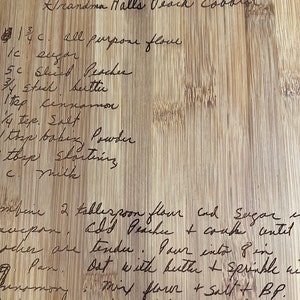 Grandma Halls Peach Cobbler
1 3/4 c. all purpose flour
1c sugar
5c Sliced Peaches
3/4 stick butter
1 tsp cinnamon
1/4 tsp. Salt
1 tbsp baking Powder
tbsp Shortening
c. milk
mbine 2 tablespoon flour and Sugar in
aucepan. Add Peaches + cook until
aches are tender. Pour into 8 in
Pan. Dot with butter + Sprinkle wi
nnamon. Mix flour + Salt + BP